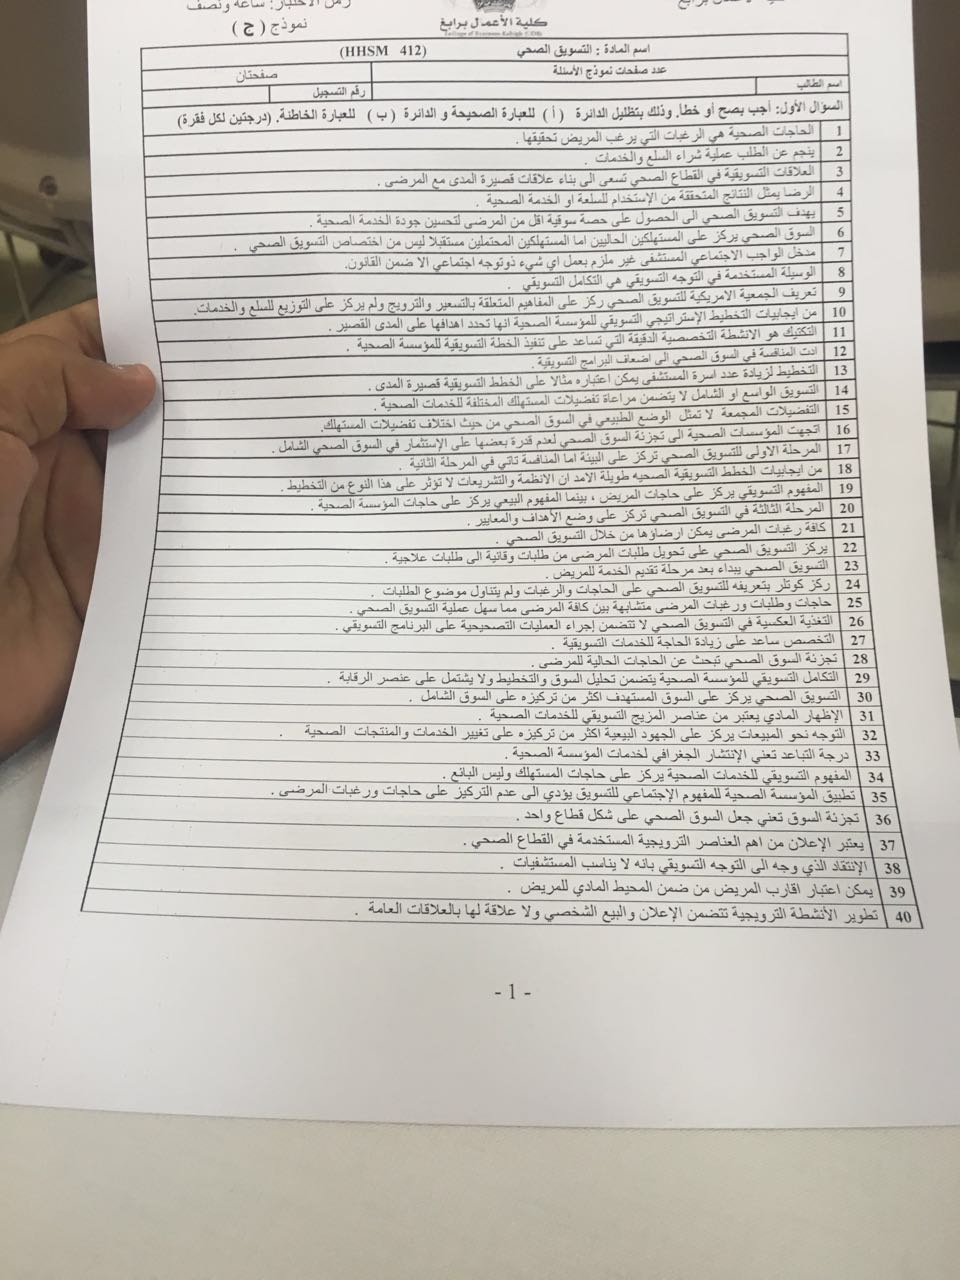 زمن الاختبار: ساعة ونصف
كلية الأعمال برابغ
نموذج ( ج )
College of Business-Rabigh (COB)
اسم المادة : التسويق الصحي (HHSM 412)
عدد صفحات نموذج الأسئلة صفحتان
اسم الطالب رقم التسجيل
السؤال الأول: أجب بصح أو خطأ. وذلك بتظليل الدائرة ( أ ) للعبارة الصحيحة و الدائرة ( ب ) للعبارة الخاطئة. (درجتين لكل فقرة)
1 الحاجات الصحية هي الرغبات التي يرغب المريض تحقيقها .
2 ينجم عن الطلب عملية شراء السلع والخدمات .
3 العلاقات التسويقية في القطاع الصحي تسعى الى بناء علاقات قصيرة المدى مع المرضى .
4 الرضا يمثل النتائج المتحققة من الإستخدام للسلعة او الخدمة الصحية .
5 يهدف التسويق الصحي الى الحصول على حصة سوقية اقل من المرضى لتحسين جودة الخدمة الصحية .
6 السوق الصحي يركز على المستهلكين الحاليين اما المستهلكين المحتملين مستقبلا ليس من اختصاص التسويق الصحي .
7 مدخل الواجب الاجتماعي المستشفى غير ملزم بعمل اي شيء ذوتوجه اجتماعي الا ضمن القانون.
8 الوسيلة المستخدمة في التوجه التسويقي هي التكامل التسويقي .
9 تعريف الجمعية الامريكية للتسويق الصحي ركز على المفاهيم المتعلقة بالتسعير والترويج ولم يركز على التوزيع للسلع والخدمات.
10 من ايجابيات التخطيط الإستراتيجي التسويقي للمؤسسة الصحية انها تحدد اهدافها على المدى القصير .
11 التكتيك هو الانشطة التخصصية الدقيقة التي تساعد على تنفيذ الخطة التسويقية للمؤسسة الصحية .
12 ادت المنافسة في السوق الصحي الى اضعاف البرامج التسويقية .
13 التخطيط لزيادة عدد اسرة المستشفى يمكن اعتباره مثالا على الخطط التسويقية قصيرة المدى .
14 التسويق الواسع او الشامل لا يتضمن مراعاة تفضيلات المستهلك المختلفة للخدمات الصحية .
15 التفضيلات المجمعة لا تمثل الوضع الطبيعي في السوق الصحي من حيث اختلاف تفضيلات المستهلك.
16 اتجهت المؤسسات الصحية الى تجزئة السوق الصحي لعدم قدرة بعضها على الإستثمار في السوق الصحي الشامل .
17 المرحلة الاولى للتسويق الصحي تركز على البيئة اما المنافسة تاتي في المرحلة الثانية .
18 من ايجابيات الخطط التسويقية الصحيه طويلة الامد ان الانظمة والتشريعات لا تؤثر على هذا النوع من التخطيط .
19 المفهوم التسويقي يركز على حاجات المريض ، بينما المفهوم البيعي يركز على حاجات المؤسسة الصحية .
20 المرحلة الثالثة في التسويق الصحي تركز على وضع الأهداف والمعايير .
21 كافة رغبات المرضى يمكن ارضاؤها من خلال التسويق الصحي .
22 يركز التسويق الصحي على تحويل طلبات المرضى من طلبات وقائية الى طلبات علاجية .
23 التسويق الصحي يبداء بعد مرحلة تقديم الخدمة للمريض .
24 ركز كوتلر بتعريفه للتسويق الصحي على الحاجات والرغبات ولم يتناول موضوع الطلبات .
25 حاجات وطلبات ورغبات المرضى متشابهة بين كافة المرضى مما سهل عملية التسويق الصحي .
26 التغذية العكسية في التسويق الصحي لا تتضمن إجراء العمليات التصحيحية على البرنامج التسويقي .
27 التخصص ساعد على زيادة الحاجة للخدمات التسويقية .
28 تجزئة السوق الصحي تبحث عن الحاجات الحالية للمرضى .
29 التكامل التسويقي للمؤسسة الصحية يتضمن تحليل السوق والتخطيط ولا يشتمل على عنصر الرقابة .
30 التسويق الصحي يركز على السوق المستهدف اكثر من تركيزه على السوق الشامل .
31 الإظهار المادي يعتبر من عناصر المزيج التسويقي للخدمات الصحية .
32 التوجه نحو المبيعات يركز على الجهود البيعية اكثر من تركيزه على تغيير الخدمات والمنتجات الصحية .
33 درجة التباعد تعني الإنتشار الجغرافي لخدمات المؤسسة الصحية .
34 المفهوم التسويقي للخدمات الصحية يركز على حاجات المستهلك وليس البائع .
35 تطبيق المؤسسة الصحية للمفهوم الإجتماعي للتسويق يؤدي الى عدم التركيز على حاجات ورغبات المرضى .
36 تجزئة السوق تعني جعل السوق الصحي على شكل قطاع واحد .
37 يعتبر الإعلان من اهم العناصر الترويجية المستخدمة في القطاع الصحي .
38 الإنتقاد الذي وجه الى التوجه التسويقي بانه لا يناسب المستشفيات .
39 يمكن اعتبار اقارب المريض من ضمن المحيط المادي للمريض .
40 تطوير الأنشطة الترويجية تتضمن الإعلان والبيع الشخصي ولا علاقة لها بالعلاقات العامة .
- 1 -